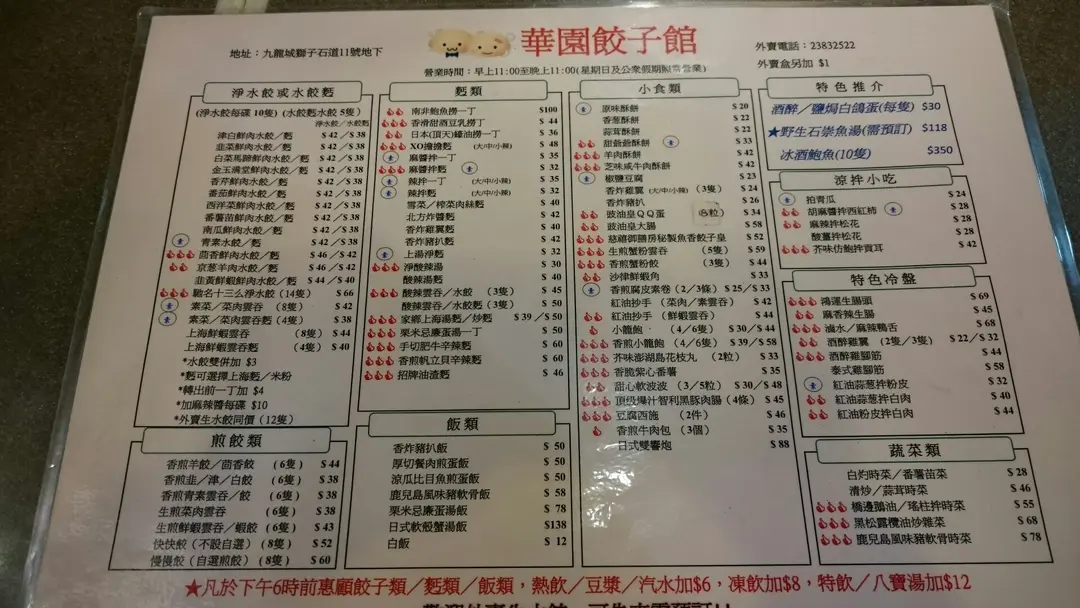 地址：九龍城獅子石道11號地下
華園餃子館
外賣電話：23832522
外賣盒另加 $1
營業時間：早上11:00至晚上11:00(星期日及公眾假期照常營業)
淨水餃或水餃麪
(淨水餃每碟 10隻) (水餃麪水餃 5隻)
淨水餃／水餃麪
津白鮮肉水餃／麪 $ 42 ／$ 38
韭菜鮮肉水餃／麪 $ 42 ／$ 38
白菜馬蹄鮮肉水餃／麪 $ 42 ／$ 38
金玉滿堂鮮肉水餃／麪 $ 42 ／$ 38
香芹鮮肉水餃／麪 $ 42 ／$ 38
番茄鮮肉水餃／麪 $ 42 ／$ 38
西洋菜鮮肉水餃／麪 $ 42 ／$ 38
番薯苗鮮肉水餃／麪 $ 42 ／$ 38
南瓜鮮肉水餃／麪 $ 42 ／$ 38
青素水餃／麪 $ 42 ／$ 38
茴香鮮肉水餃／麪 $ 46 ／$ 42
京葱羊肉水餃／麪 $ 46 ／$ 42
韭黃鮮蝦鮮肉水餃／麪 $ 44 ／$ 40
馳名十三么淨水餃 (14隻) $ 66
素菜／菜肉雲吞 (8隻) $ 42
素菜／菜肉雲吞麪 (4隻) $ 38
上海鮮蝦雲吞 (8隻) $ 44
上海鮮蝦雲吞麪 (4隻) $ 40
*水餃雙併加 $3
*麪可選擇上海麪／米粉
*轉出前一丁加 $4
*加麻辣醬每碟 $10
*外賣生水餃同價 (12隻)
煎餃類
香煎羊餃／茴香餃 (6隻) $ 44
香煎韭／津／白餃 (6隻) $ 38
香煎青素雲吞／餃 (6隻) $ 38
生煎菜肉雲吞 (6隻) $ 38
生煎鮮蝦雲吞／蝦餃 (6隻) $ 43
快快餃 (不設自選) (8隻) $ 52
慢慢餃 (自選煎餃) (8隻) $ 60
麪類
南非鮑魚撈一丁 $100
香滑甜酒豆乳撈丁 $ 44
日本(頂天)蠔油撈一丁 $ 36
XO擔擔麪 (大/中/小辣) $ 48
麻醬拌一丁 $ 35
麻醬拌麪 $ 32
辣拌一丁 (大/中/小辣) $ 35
辣拌麪 (大/中/小辣) $ 32
雪菜／榨菜肉絲麪 $ 40
北方炸醬麪 $ 42
香炸雞翼麪 $ 40
香炸豬扒麪 $ 42
上湯淨麪 $ 32
淨酸辣湯 $ 30
酸辣湯麪 $ 40
酸辣雲吞／水餃 (3隻) $ 45
酸辣雲吞／水餃麪 (3隻) $ 50
家鄉上海湯麪／炒麪 $ 39 ／$ 50
栗米忌廉蛋湯一丁 $ 50
手切肥牛辛辣麪 $ 60
香煎帆立貝辛辣麪 $ 60
招牌油渣麪 $ 46
飯類
香炸豬扒飯 $ 50
厚切餐肉煎蛋飯 $ 50
涼瓜比目魚煎蛋飯 $ 50
鹿兒島風味豬軟骨飯 $ 58
栗米忌廉蛋湯飯 $ 78
日式軟殼蟹湯飯 $138
白飯 $ 12
小食類
原味酥餅 $ 20
香葱酥餅 $ 22
蒜茸酥餅 $ 22
甜爺爺酥餅 $ 33
羊肉酥餅 $ 42
芝味咸牛肉酥餅 $ 42
椒鹽豆腐 $ 23
香炸雞翼 (大/中/小辣) (3隻) $ 24
香炸豬扒 $ 26
豉油皇ＱＱ蛋 (8粒) $ 34
豉油皇大腸 $ 58
慈禧御膳房秘製魚香餃子皇 $ 52
生煎蟹粉雲吞 (5隻) $ 59
香煎蟹粉餃 (3隻) $ 44
沙律鮮蝦角 $ 33
香煎腐皮素卷 (2／3條) $ 25／$ 33
紅油抄手 (菜肉／素雲吞) $ 42
紅油抄手 (鮮蝦雲吞) $ 44
小籠飽 (4／6隻) $ 30／$ 44
香煎小籠飽 (4／6隻) $ 39／$ 58
芥味澎湖島花枝丸 (2粒) $ 33
香脆紫心番薯 $ 35
甜心軟波波 (3／5粒) $ 30／$ 48
頂級爆汁智利黑豚肉腸 (4條) $ 45
豆腐西施 (2件) $ 46
香煎牛肉包 (3個) $ 35
日式雙響炮 $ 88
特色推介
酒醉／鹽焗白鴿蛋(每隻) $30
★野生石崇魚湯(需預訂) $118
冰酒鮑魚(10隻) $350
涼拌小吃
拍青瓜 $ 24
胡麻醬拌西紅柿 $ 28
麻辣拌松花 $ 28
酸薑拌松花 $ 28
芥味仿鮑拌貢耳 $ 42
特色冷盤
鴻運生腸頭 $ 69
麻香辣生腸 $ 45
滷水／麻辣鴨舌 $ 68
酒醉雞翼 (2隻／3隻) $ 22／$ 32
酒醉雞腳筋 $ 44
泰式雞腳筋 $ 58
紅油蒜葱拌粉皮 $ 32
紅油蒜葱拌白肉 $ 40
紅油粉皮拌白肉 $ 44
蔬菜類
白灼時菜／番薯苗菜 $ 28
清炒／蒜茸時菜 $ 46
橋邊鵝油／瑤柱拌時菜 $ 55
黑松露欖油炒雜菜 $ 68
鹿兒島風味豬軟骨時菜 $ 78
★凡於下午6時前惠顧餃子類／麪類／飯類，熱飲／豆漿／汽水加$6，凍飲加$8，特飲／八寶湯加$12